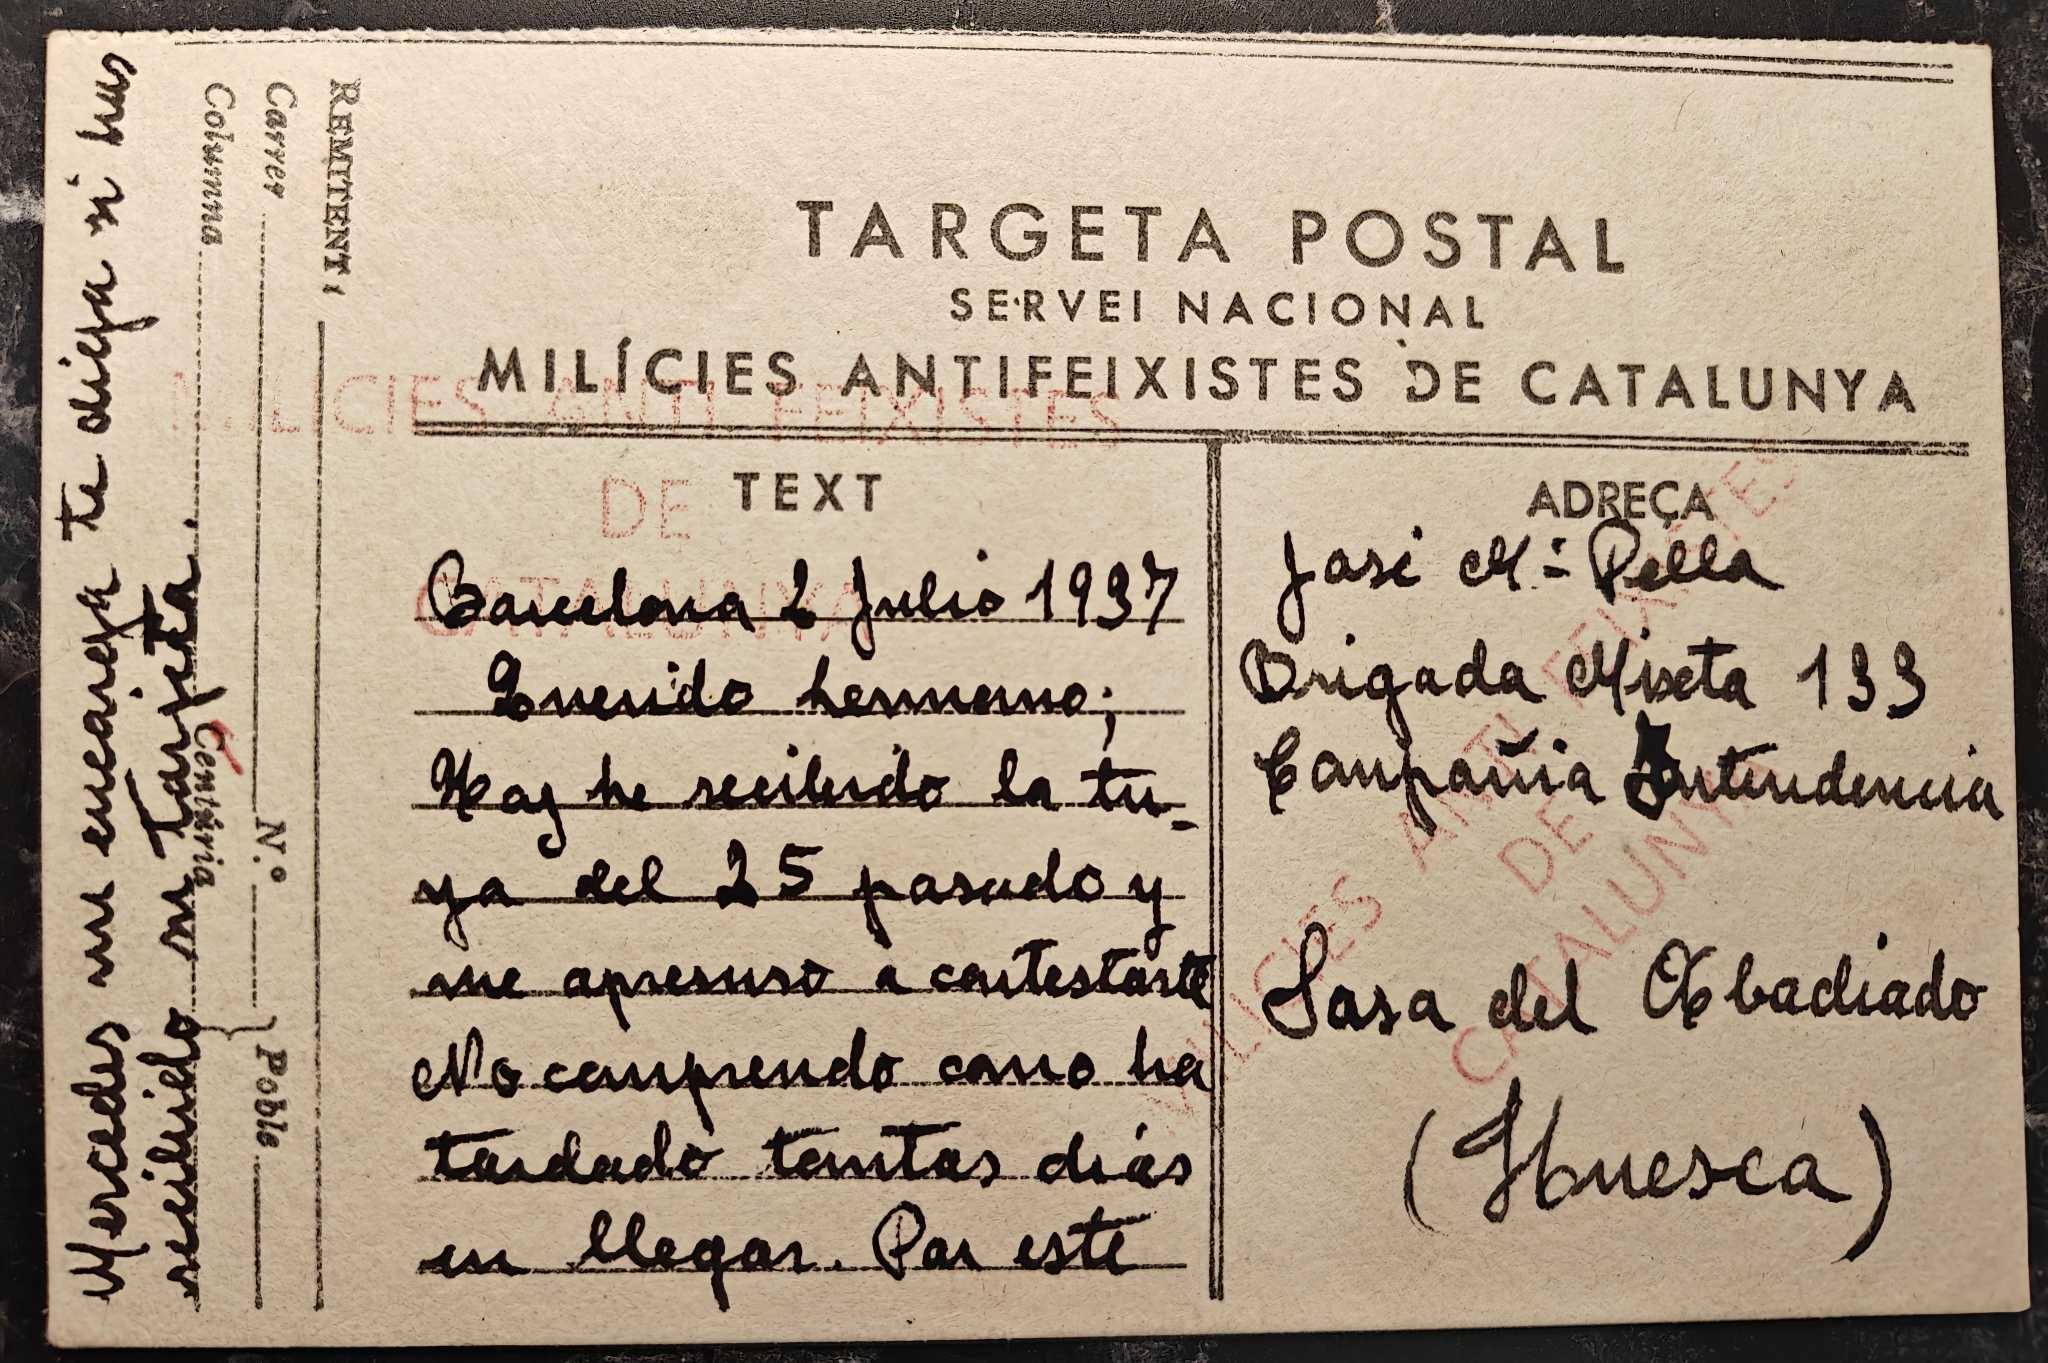 TARGETA POSTAL
SERVEI NACIONAL
MILÍCIES ANTIFEIXISTES DE CATALUNYA
TEXT
Barcelona 2 Julio 1937
Querido hermano;
Hoy he recibido la tu-
ya del 25 pasado y
me apresuro a contestarte
No comprendo como ha
tardado tantos diás
en llegar. Por este
ADREÇA
José Mª Pella
Brigada Mixta 133
Compañia Intendencia
Sasa del Abadiado
(Huesca)
REMITENT:
Carrer N.º
Columna Centúria
} Poble
Mercedes me encarega te diga si has
recibido su tarjeta.
MILÍCIES ANTI FEIXISTES
DE
CATALUNYA
MILÍCIES ANTI FEIXISTES
DE
CATALUNYA